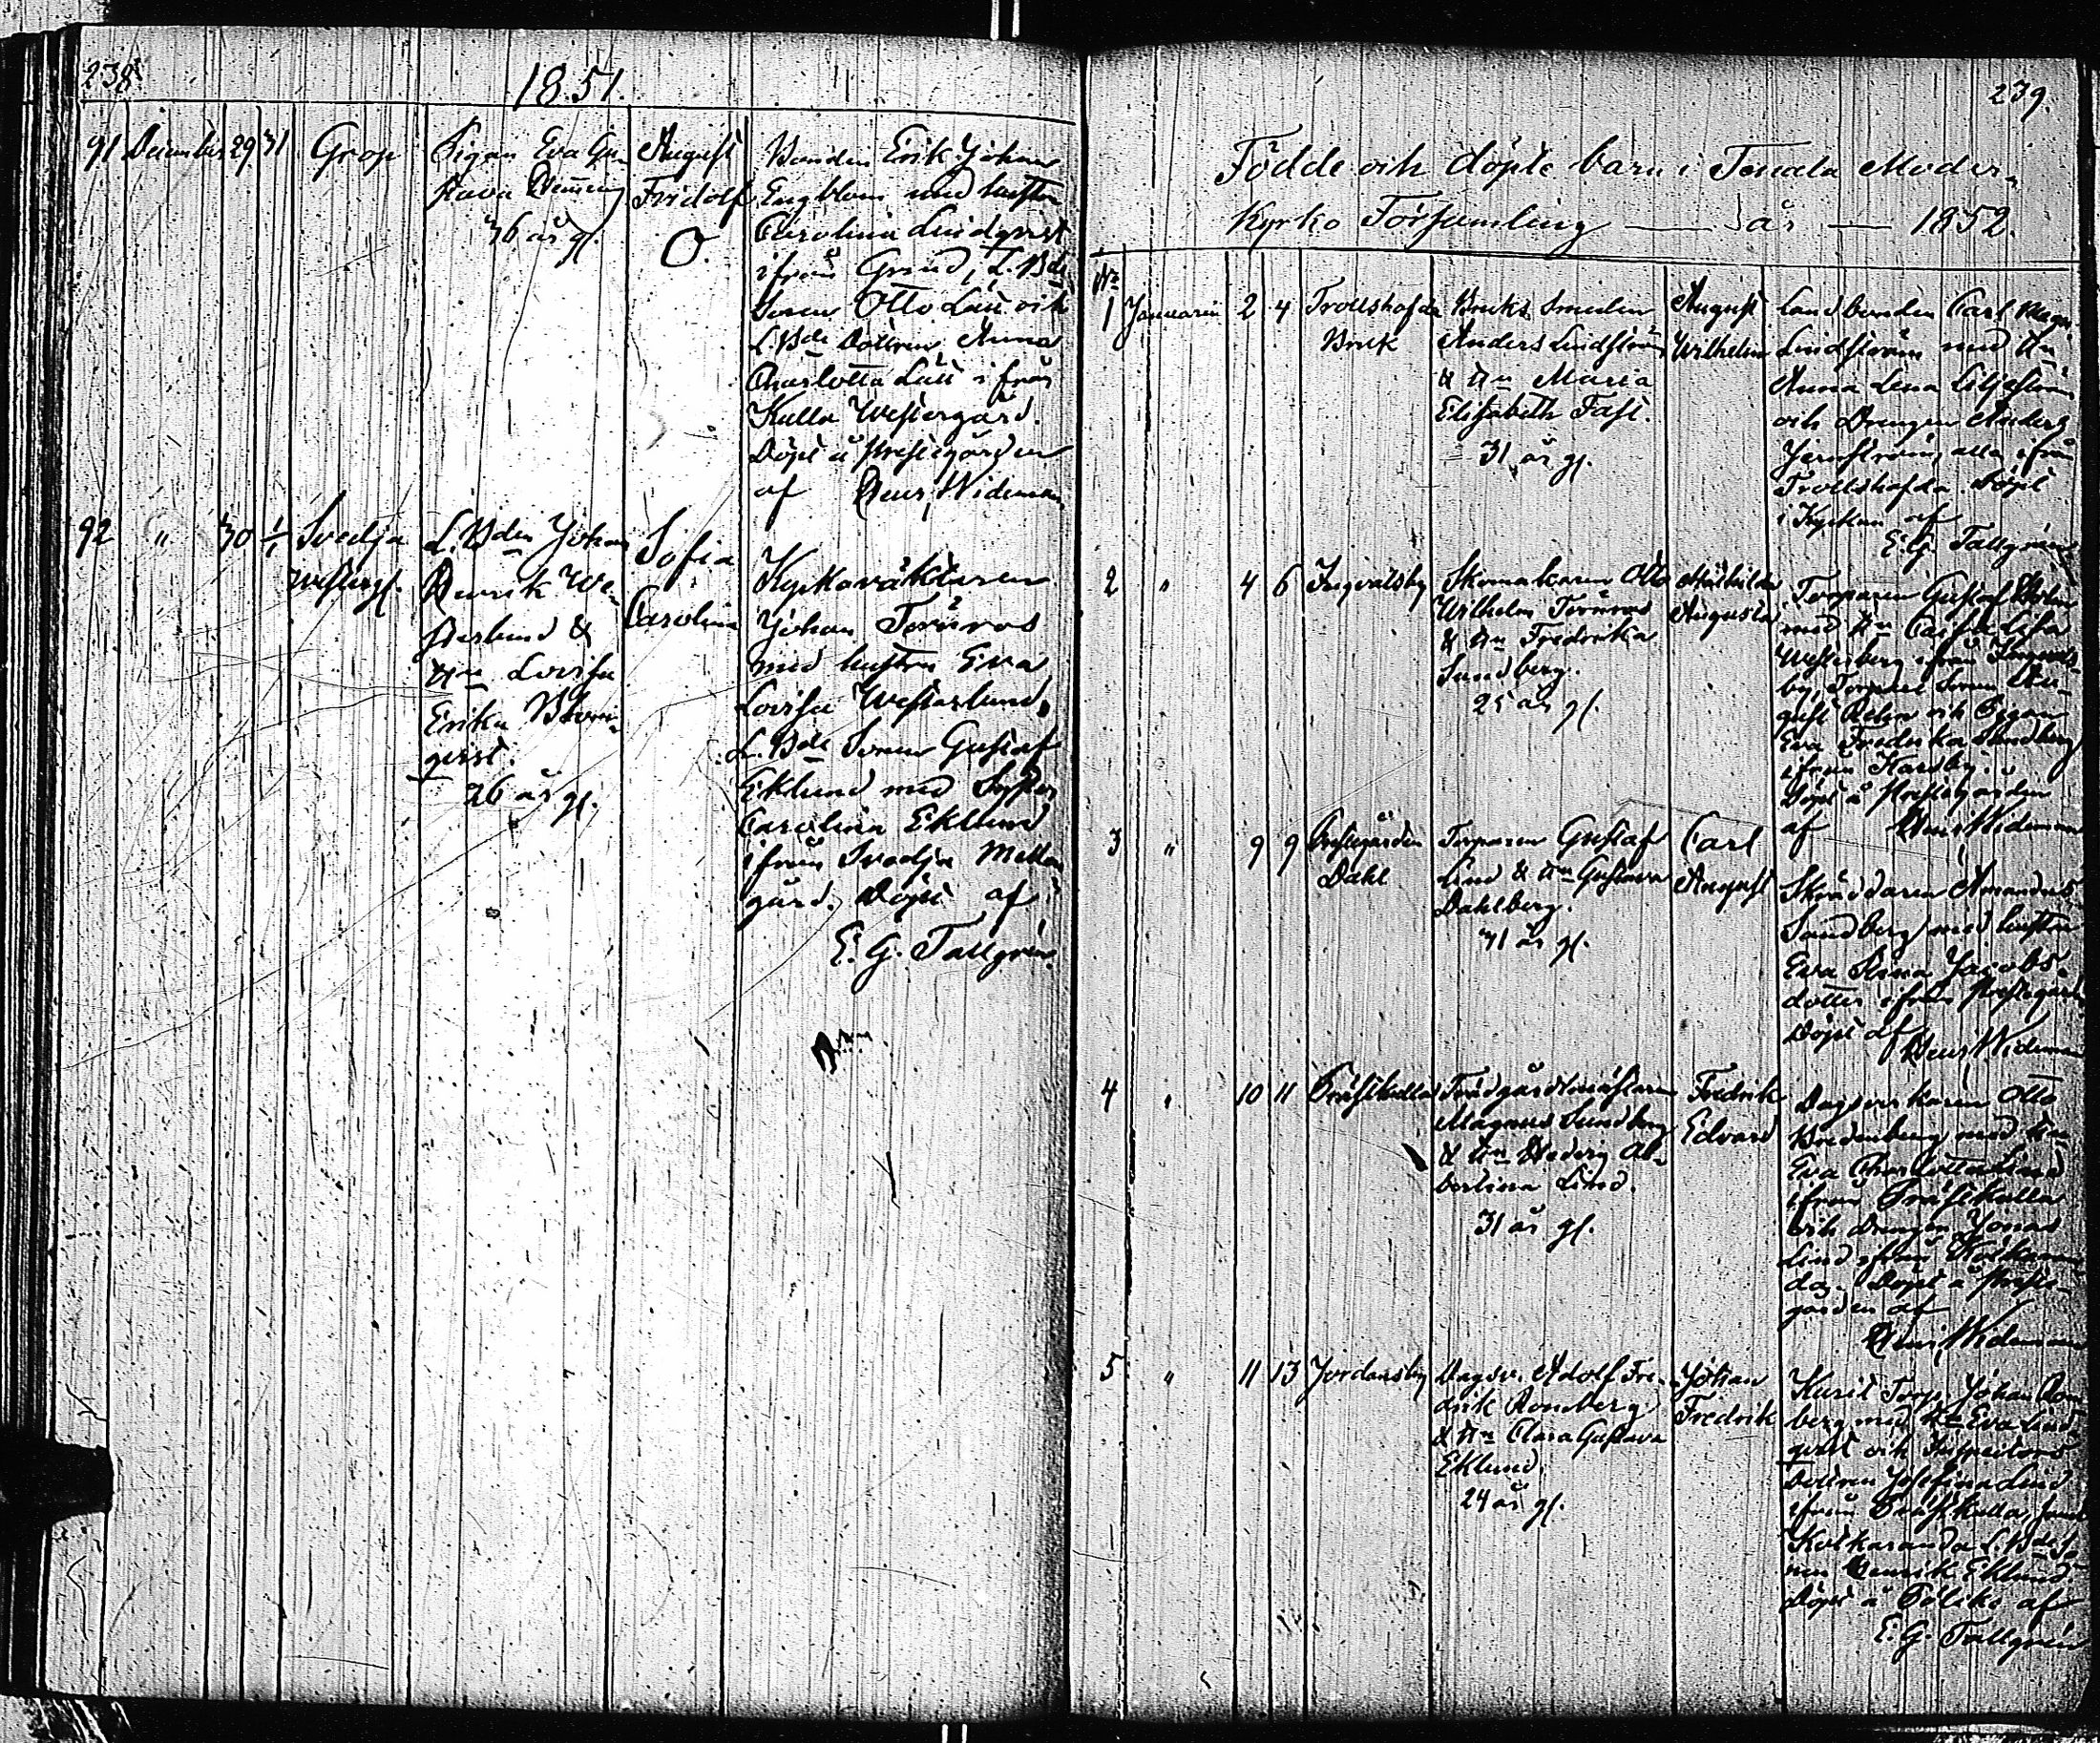 238
1851.
91 December 29 31 Grop Pigan Eva Gu-
stava Flemming
36 år gl.
August
Fridolf
O.
Bonden Erik Johan
Engblom med hustru
Carolina Lindqvist
ifrån Grind, L. Bde
Sonen Otto Lau och
L. Bde Dottren Anna
Charlotta Lau ifrån
Kulla Westergård.
Döpt å Prestegården
af Henr. Wideman
92 " 30 1/1 Svedja
Westerg.
L. Bden Johan
Henrik We-
sterlund &
Hn Lovisa
Erika Blom-
qvist.
26 år gl.
Sofia
Carolina
Kyrkoväktaren
Johan Törnroos
med hustru Eva
Lovisa Westerlund,
L. Bde Sonen Gustaf
Eklund med Syster
Carolina Eklund
ifrån Svedja Mellan
gård. Döpt af
E. G. Tallgrén.
239.
Födde och döpte barn i Tenala Moder-
Kyrko Församling — år — 1852.
No
1 Januarii 2 4 Trollshofda
Bruk
Bruks Smeden
Anders Lindström
& Hn Maria
Elisabeth Fast.
31 år gl.
August
Wilhelm
Landbonden Carl Magn.
Lindström med Hn
Anna Lena Liljeström
och Drengen Anders
Jernström, alla ifrån
Trollshofda. Döpt
i Kyrkan af
E. G. Tallgrén
2 " 4 6 Ingvalsby
Skomakaren Otto
Wilhelm Törnroos
& Hn Fredrika
Sundberg.
25 år gl.
Mathilda
Augusta
Torparen Gustaf
med Hn Cajsa Lisa
Westerberg ifrån Ingvals-
by, Torpare Sonen Au-
gust och Pigan
Eva Fredrika Sundberg
ifrån Harsby.
Döpt å Prestegården
af Henr. Wideman
3 " 9 9 Prestegården
Dahl
Torparen Gustaf
Lind & Hn Gustava
Dahlberg.
31 år gl.
Carl
August
Skräddaren Amandus
Sandberg med hustru
Eva Stina Jacobs-
dotter ifrån Prestegård
Döpt af
Henr. Wideman
4 " 10 11 Prästkulla
Trädgårdsmästaren
Magnus Sundberg
& Hn Hedvig Al-
bertina Lind.
31 år gl.
Fredrik
Edvard
Dagsverkaren Otto
Bredenberg med Hn
Eva Charlotta Lind
ifrån Prästkulla
och Drengen Jonas
Lind ifrån Kolkaran-
da. Döpt å Preste-
gården af
Henr. Wideman
5 " 11 13 Jordansby
Dagsv. Adolf Fre-
drik Romberg
& Hn Clara Gustava
Eklund.
24 år gl.
Johan
Fredrik
Torp. Johan Rom-
berg med Hn Eva Lind-
qvist och Inspectors
Dottren Josefina Lind
ifrån Prästkulla, samt
Kolkaranda L. Bde So-
nen Henrik Eklund
Döpt å af
E. G. Tallgrén